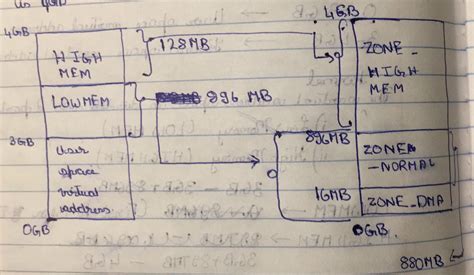 4GB
HIGH
MEM
LOWMEM
3GB
user
space
virtual
address
0GB
128MB
896 MB
4GB
ZONE_
HIGH
MEM
896MB
ZONE
-NORMAL
16MB
ZONE_DMA
0GB
880MB